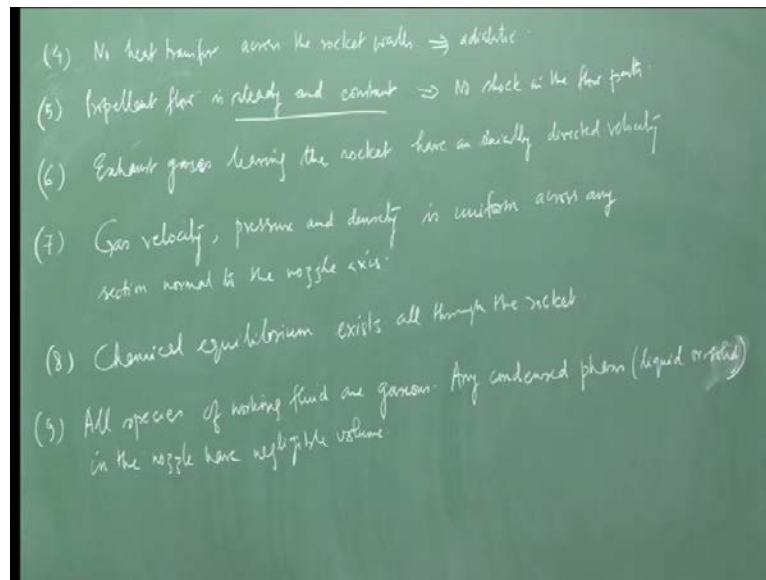 (4) No heat transfer across the rocket walls ⇒ adiabatic.
(5) Propellent flow is steady and constant ⇒ No shock in the flow path.
(6) Exhaust gases leaving the rocket have an axially directed velocity
(7) Gas velocity, pressure and density is uniform across any
section normal to the nozzle axis.
(8) Chemical equilibrium exists all through the rocket
(9) All species of working fluid are gaseous. Any condensed phases (liquid or solid)
in the nozzle have negligible volume.